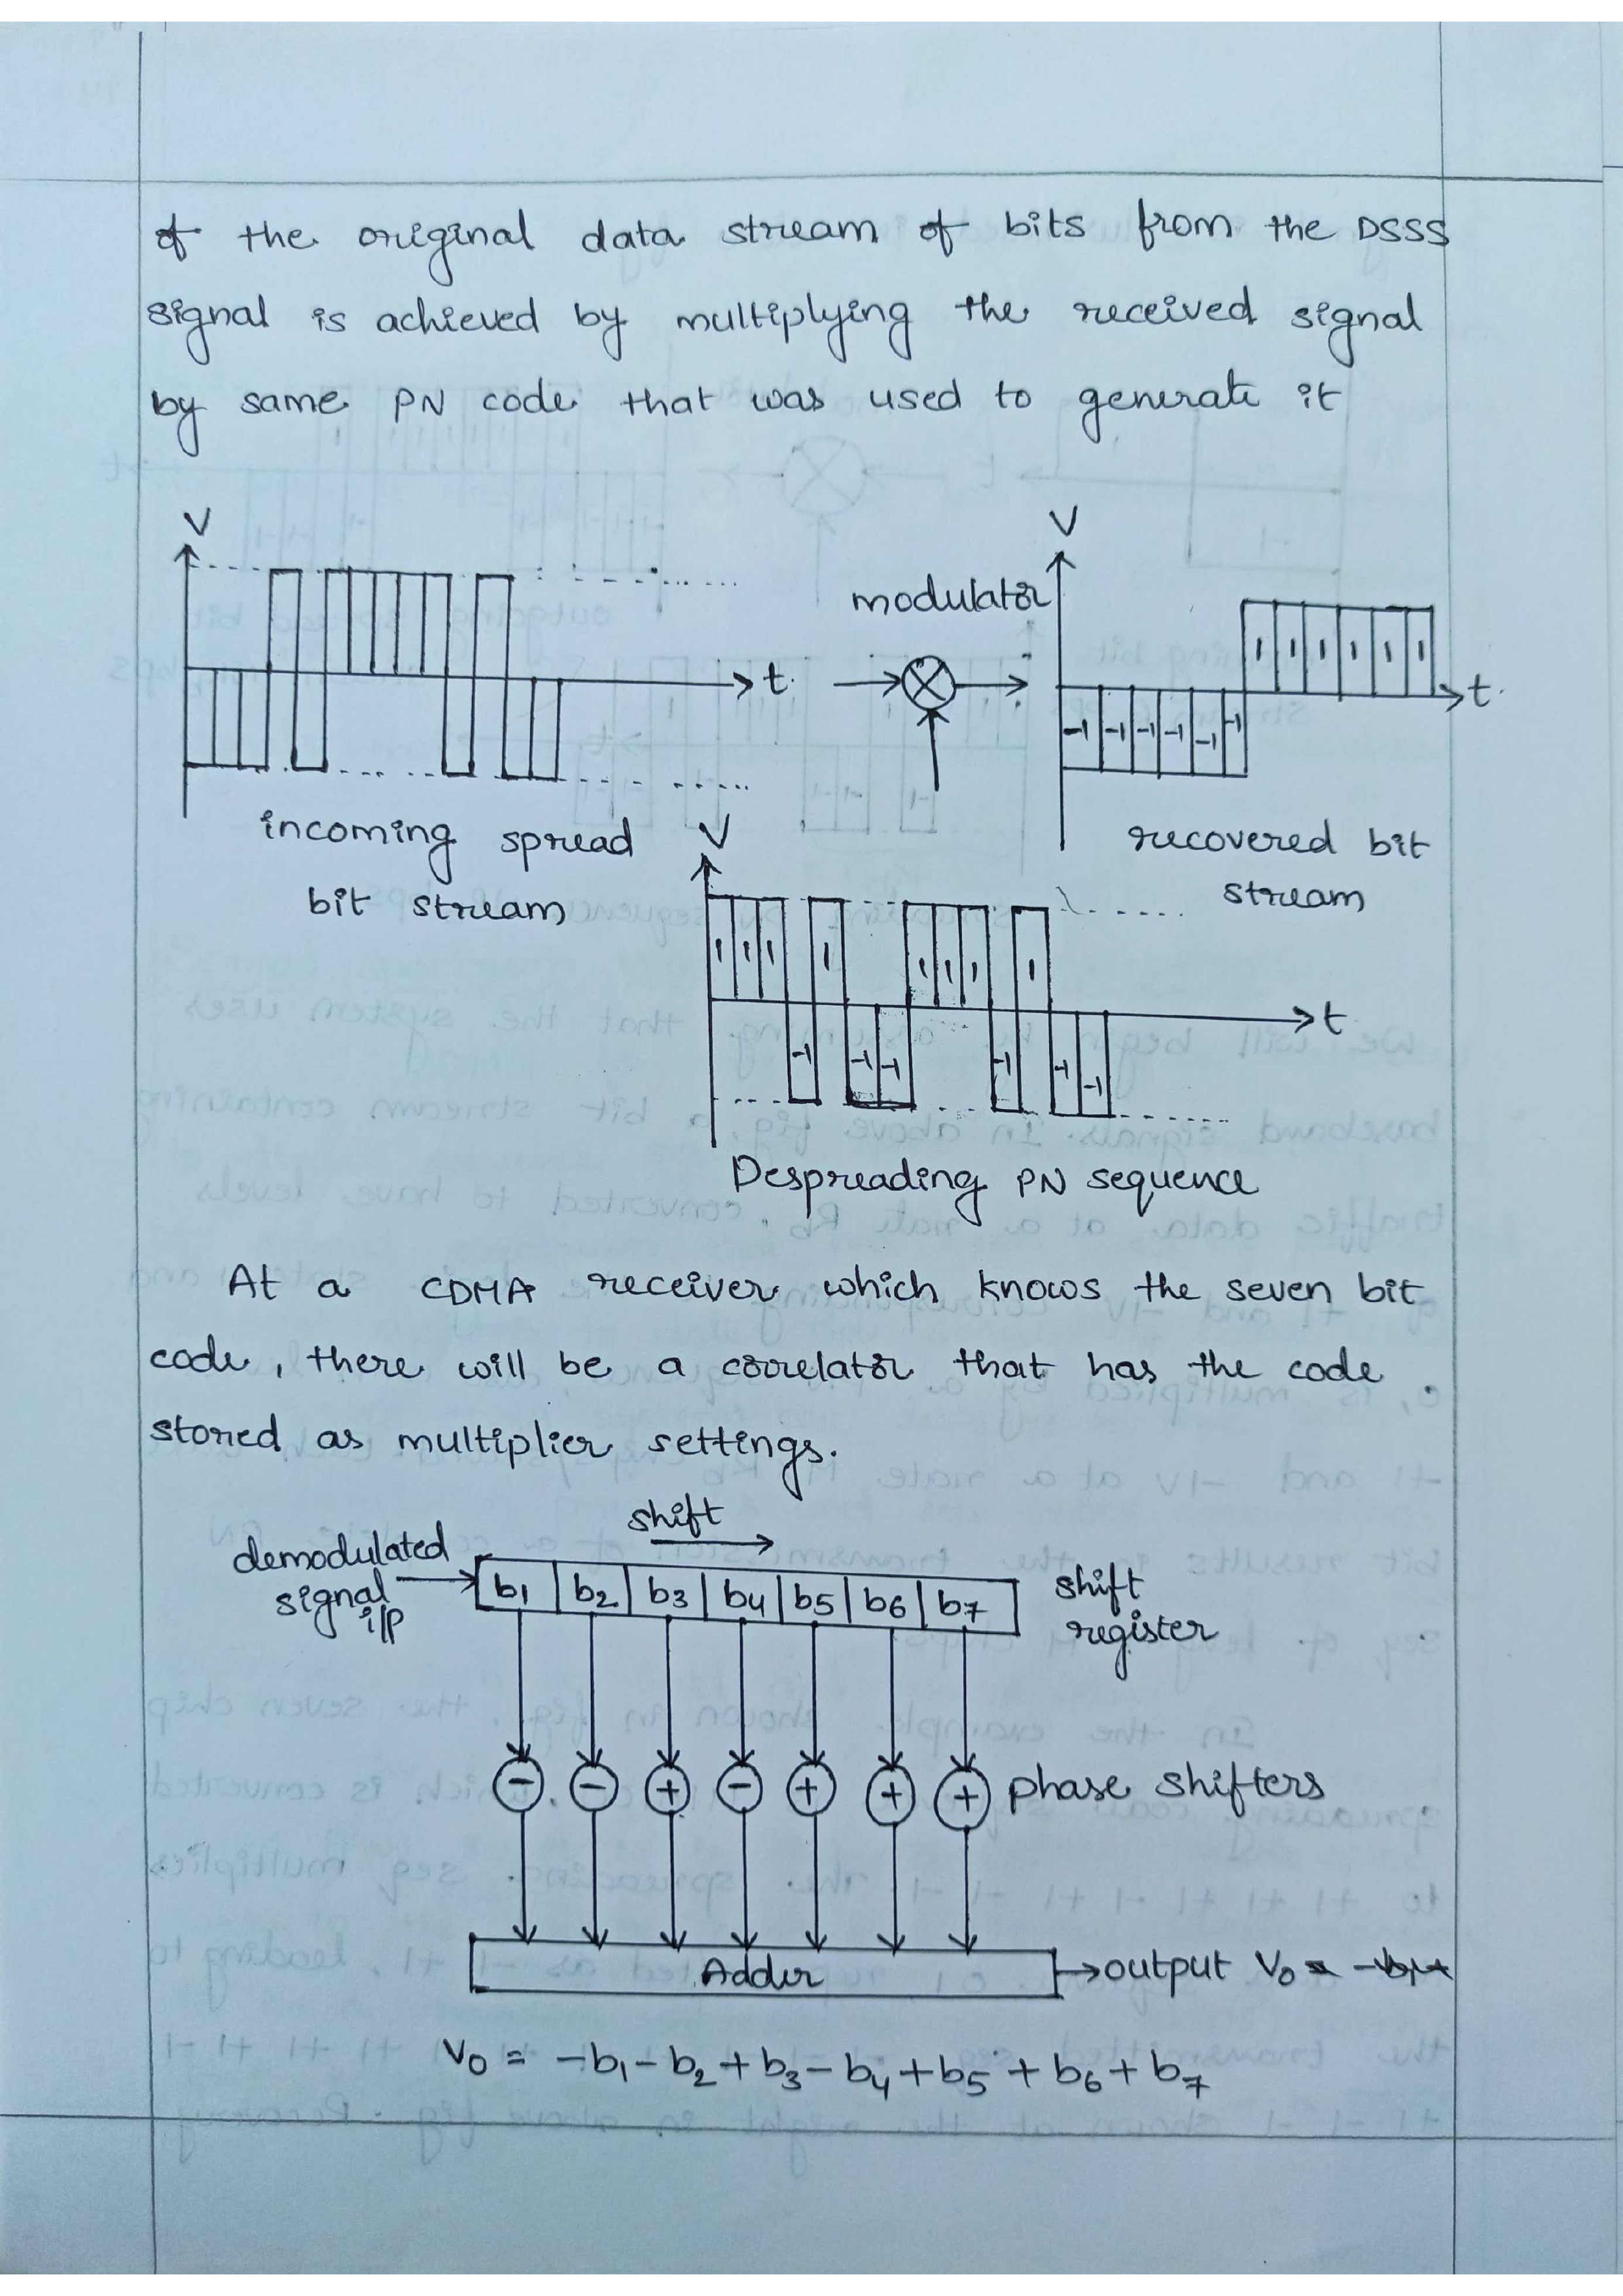 of the original data stream of bits from the DSSS
signal is achieved by multiplying the received signal
by same PN code that was used to generate it
V
t
incoming spread
bit stream
modulator
V
-1 -1 -1 -1 -1 -1 1 1 1 1 1 1
t
recovered bit
stream
V
1 1 1 -1 1 -1 -1 1 1 1 -1 1 -1 -1
t
Despreading PN sequence
At a CDMA receiver which knows the seven bit
code, there will be a correlator that has the code
stored as multiplier settings.
shift
demodulated
signal
i/p
b1 b2 b3 b4 b5 b6 b7
shift
register
- - + - + + + phase shifters
Adder output V0 =
V0 = -b1 - b2 + b3 - b4 + b5 + b6 + b7